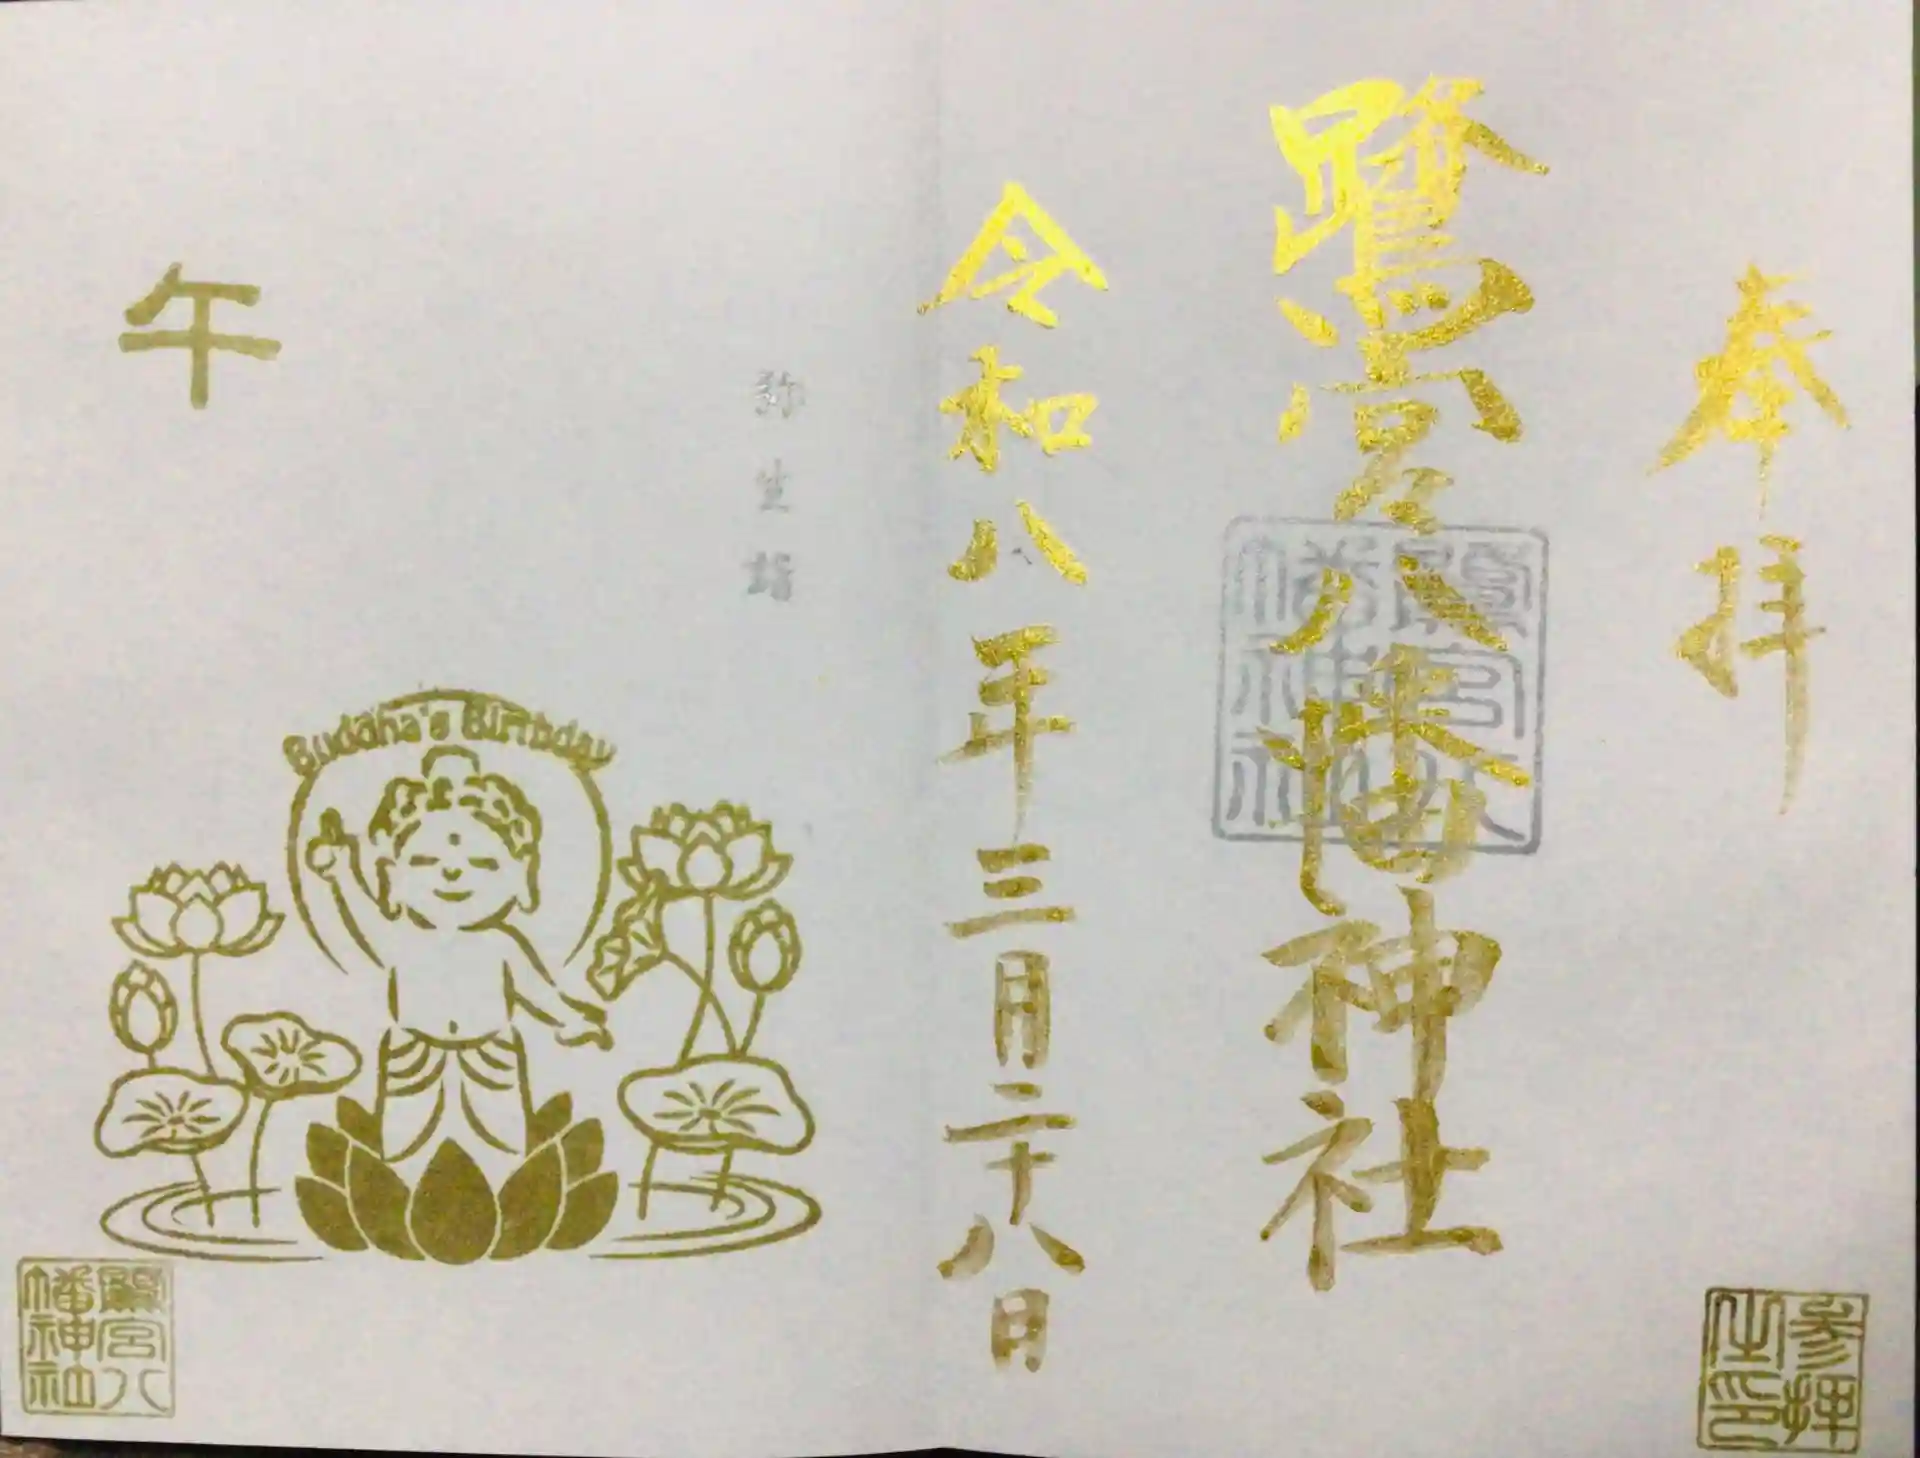 奉拝
鷺宮八幡神社
鷺宮八幡神社
令和八年三月二十八日
参拝之印
弥生詣
午
Buddha's Birthday
鷺宮八幡神社